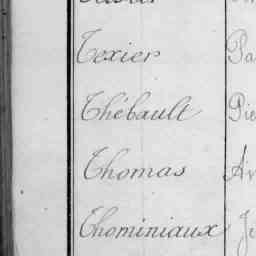 Texier Pa
Thébault Pie
Thomas Ar
Thominiaux Je